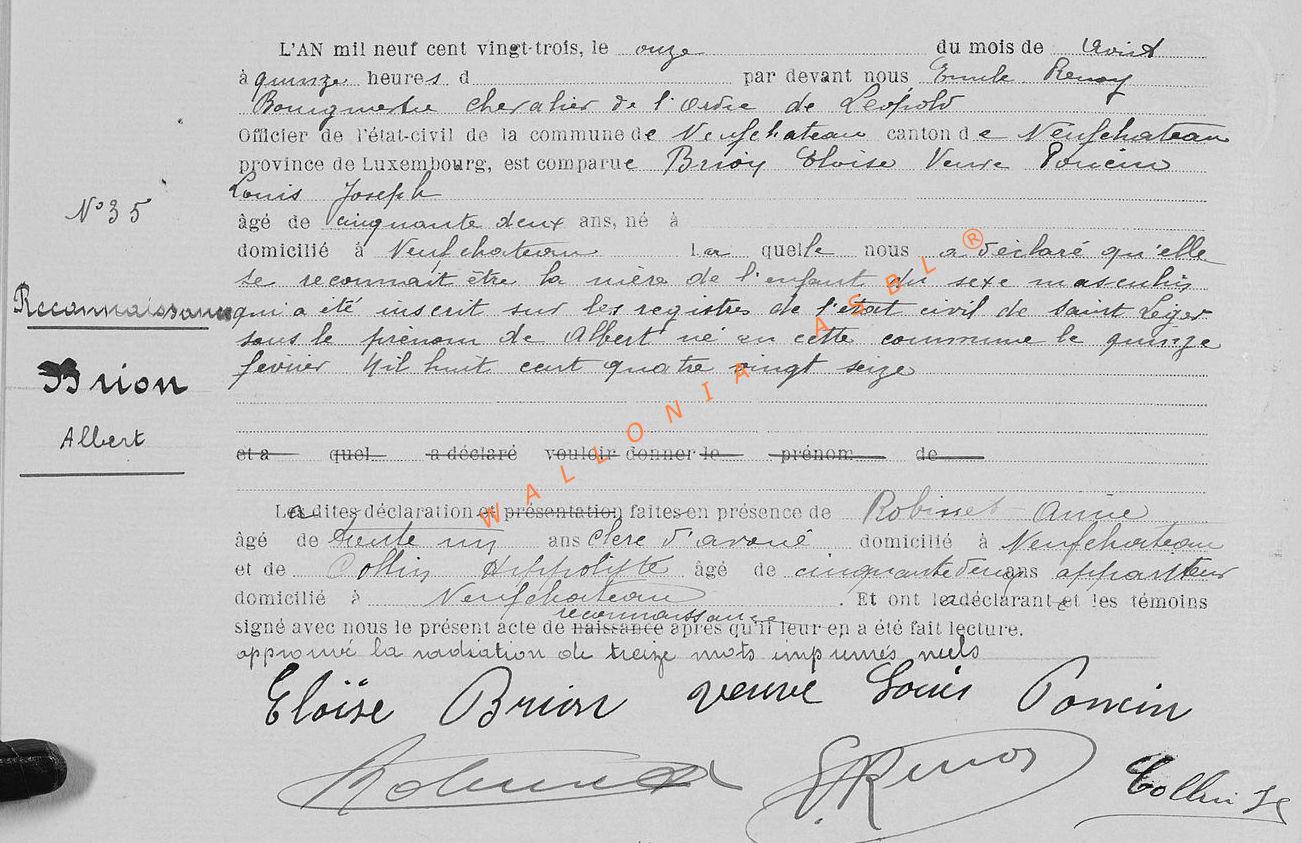 L'AN mil neuf cent vingt-trois, le onze du mois de Août
à quinze heures d par devant nous Emile Renoy
Bourgmestre chevalier de l'Ordre de Léopold
Officier de l'état-civil de la commune de Neufchateau canton de Neufchateau
province de Luxembourg, est comparue Brion Eloise Veuve Poncin
Louis Joseph
N° 35
âgé de cinquante deux ans, né à
domicilié à Neufchateau La quelle nous a déclaré qu'elle
se reconnait être la mère de l'enfant du sexe masculin
Reconnaissance
qui a été inscrit sur les registres de l'état civil de Saint Léger
sous le prénom de Albert né en cette commune le quinze
février Mil huit cent quatre vingt seize
Brion
Albert
et a quel a déclaré vouloir donner le prénom de
La dites déclaration et présentation faites en présence de Robinet
âgé de trente un ans clerc d'avoué domicilié à Neufchateau
et de Collin Hippolyte âgé de cinquante deux ans appariteur
domicilié à Neufchateau . Et ont la déclarante et les témoins
reconnaissance
signé avec nous le présent acte de naissance après qu'il leur en a été fait lecture.
approuvé la radiation de treize mots imprimés nuls
Eloïse Brion veuve Louis Poncin
Robinet
E. Renoy
Collin
WALLONIA ASBL ®